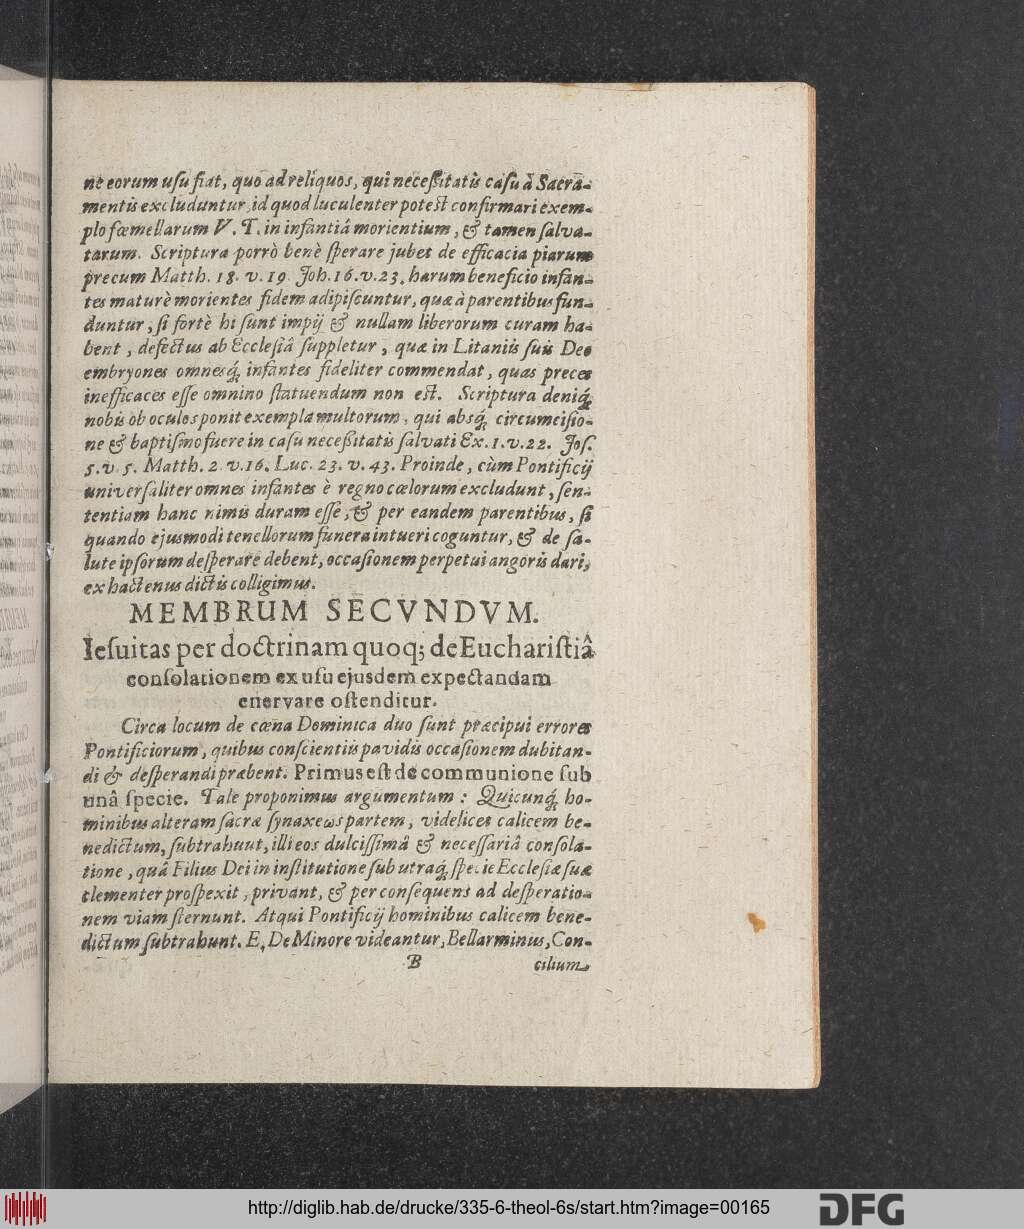 ne eorum uſu fiat, quo ad reliquos, qui neceßitatis caſu à Sacra-
mentis excluduntur, id quod luculenter poteſt confirmari exem-
plo fœmellarum V. T. in infantiâ morientium, & tamen ſalva-
tarum. Scriptura porrò benè ſperare jubet de efficacia piarum
precum Matth. 18. v. 19. Joh. 16. v. 23. harum beneficio infan-
tes maturè morientes fidem adipiſcuntur, quæ à parentibus fun-
duntur, ſi fortè hi ſunt impij & nullam liberorum curam ha-
bent, defectus ab Eccleſiâ ſuppletur, quæ in Litaniis ſuis Deo
embryones omnesq́; infantes fideliter commendat, quas preces
inefficaces eſſe omnino ſtatuendum non eſt. Scriptura deniq́;
nobis ob oculos ponit exempla multorum, qui absq́; circumciſio-
ne & baptiſmo fuere in caſu neceßitatis ſalvati Ex. 1. v. 22. Joſ.
5. v. 5. Matth. 2. v. 16. Luc. 23. v. 43. Proinde, cùm Pontificij
univerſaliter omnes infantes è regno cœlorum excludunt, ſen-
tentiam hanc nimis duram eſſe, & per eandem parentibus, ſi
quando ejusmodi tenellorum funera intueri coguntur, & de ſa-
lute ipſorum deſperare debent, occaſionem perpetui angoris dari,
ex hactenus dictis colligimus.
MEMBRUM SECVNDVM.
Ieſuitas per doctrinam quoq; de Euchariſtiâ
conſolationem ex uſu ejusdem expectandam
enervare oſtenditur.
Circa locum de cœna Dominica duo ſunt præcipui errores
Pontificiorum, quibus conſcientiis pavidis occaſionem dubitan-
di & deſperandi præbent. Primus eſt de communione ſub
unâ ſpecie. Tale proponimus argumentum: Quicunq́; ho-
minibus alteram ſacræ ſynaxεως partem, videlicet calicem be-
nedictum, ſubtrahunt, illi eos dulciſſimâ & neceſſariâ conſola-
tione, quâ Filius Dei in inſtitutione ſub utraq́; ſpecie Eccleſiæ ſuæ
clementer proſpexit, privant, & per conſequens ad deſperatio-
nem viam ſternunt. Atqui Pontificij hominibus calicem bene-
dictum ſubtrahunt. E. De Minore videantur, Bellarminus, Con-
B cilium
http://diglib.hab.de/drucke/335-6-theol-6s/start.htm?image=00165
DFG